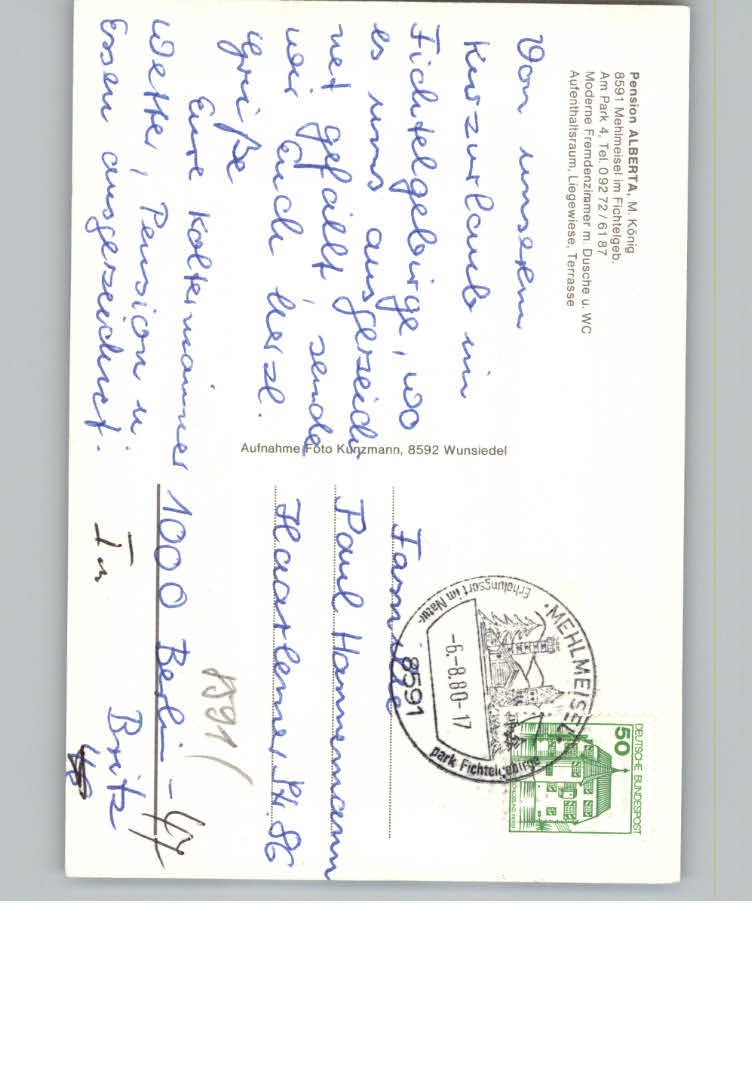 Pension ALBERTA, M. König
8591 Mehlmeisel im Fichtelgeb.
Am Park 4, Tel. 0 92 72 / 61 87
Moderne Fremdenzimmer m. Dusche u. WC
Aufenthaltsraum, Liegewiese, Terrasse
Von unserem
Kurzurlaub im
Fichtelgebirge, wo
es uns ausgezeich
net gefällt, senden
wir Euch herzl.
Grüße
Eure Koltermänner
Wetter, Pension u.
Essen ausgezeichnet.
Aufnahme Foto Kunzmann, 8592 Wunsiedel
DEUTSCHE BUNDESPOST
50
MEHLMEISEL
Erholungsort im Natur-
park Fichtelgebirge
-6.-8.80-17
8591
Familie
Paul Hannemann
Haarlemer Str. 86
1000 Berlin - 47
Britz
8591/